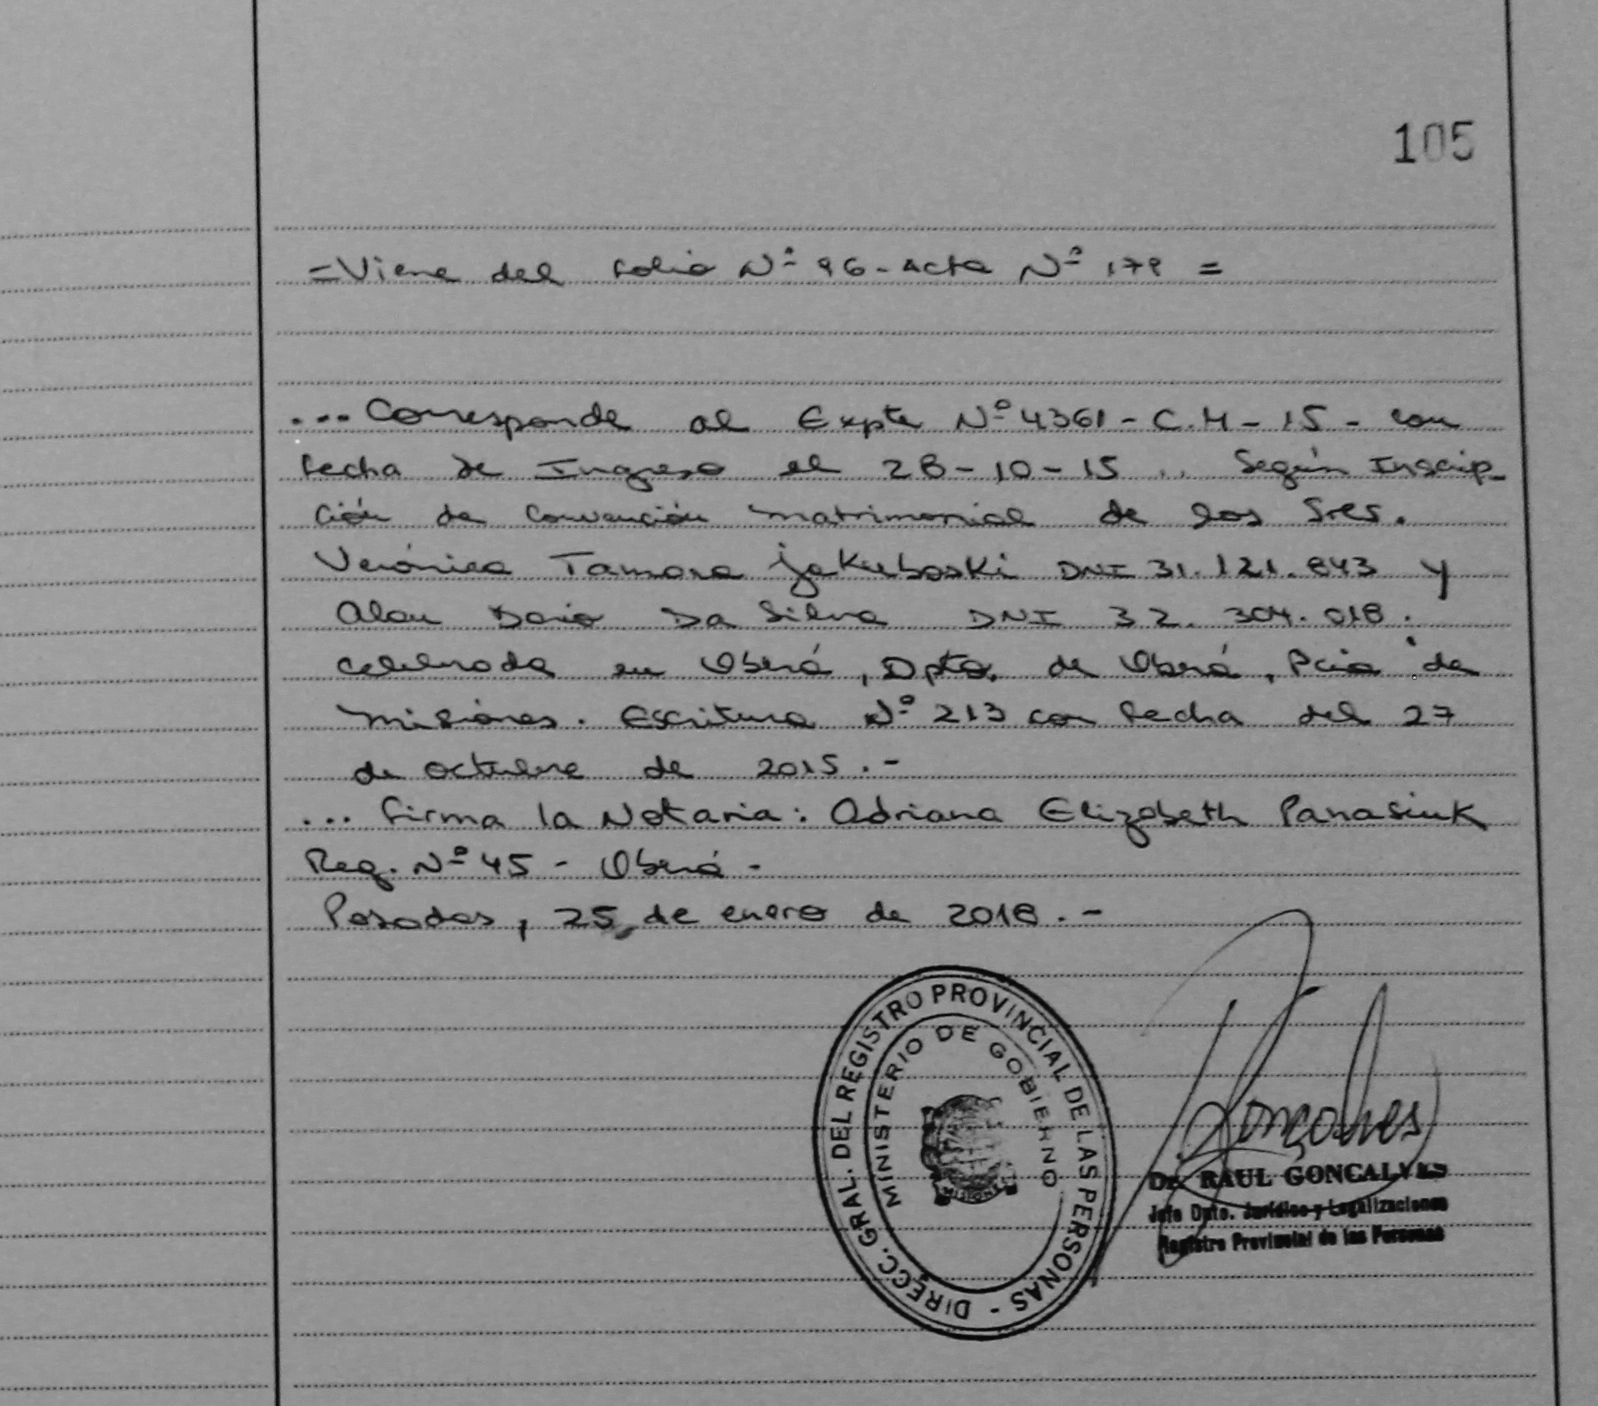 105
=Viene del folio Nº 96- Acta Nº 179 =
... Corresponde al Expte Nº 4361 - C.M - 15 - con
fecha de Ingreso el 28-10-15 .. Según Inscrip-
ción de Convención matrimonial de los Sres.
Verónica Tamara jakuboski DNI 31.121.843 y
Alan Dario Da Silva DNI 32.304.018.
celebrada en Oberá, Dpto. de Oberá, Pcia de
misiones. Escritura Nº 213 con fecha del 27
de octubre de 2015.-
... firma la Notaria: Adriana Elizabeth Panasiuk
Reg. Nº 45 - Oberá -
Posadas, 25 de enero de 2018.-
DIRECC. GRAL. DEL REGISTRO PROVINCIAL DE LAS PERSONAS -
MINISTERIO DE GOBIERNO
MISIONES
Goncalves
Dr. RAUL GONCALVES
Jefe Dpto. Jurídico y Legalizaciones
Registro Provincial de las Personas